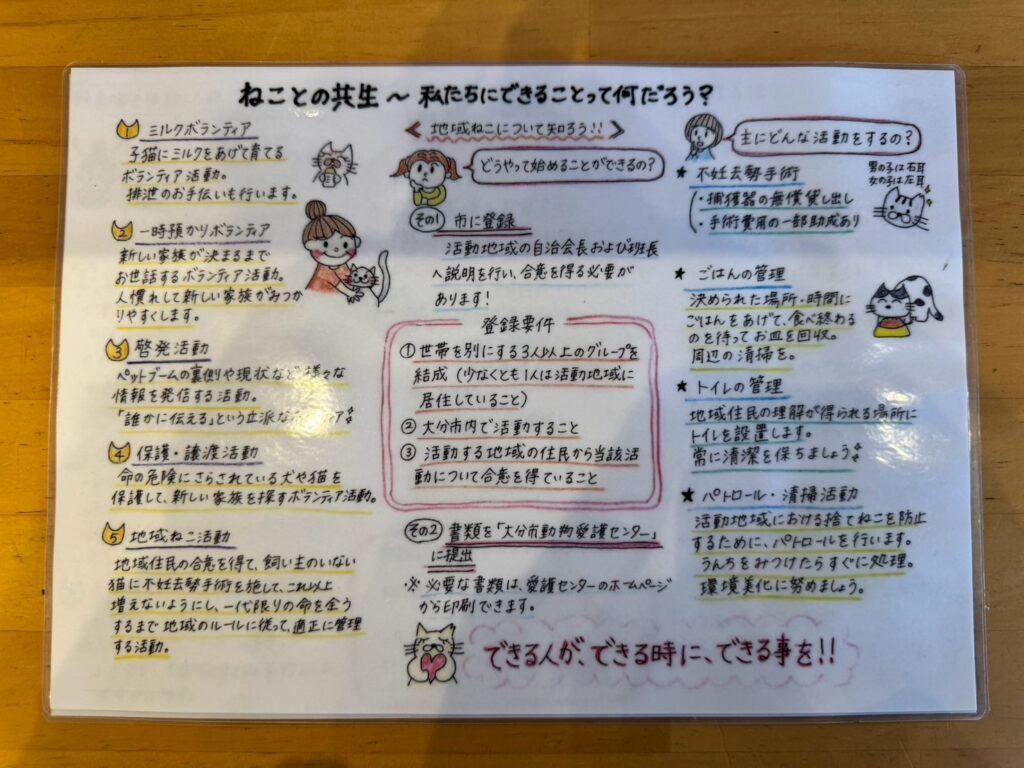 ねことの共生～私たちにできることって何だろう？
1 ミルクボランティア
子猫にミルクをあげて育てる
ボランティア活動。
排泄のお手伝いも行います。
2 一時預かりボランティア
新しい家族が決まるまで
お世話するボランティア活動。
人慣れして新しい家族がみつか
りやすくします。
3 啓発活動
ペットブームの裏側や現状など様々な
情報を発信する活動。
「誰かに伝える」という立派な
4 保護・譲渡活動
命の危険にさらされている犬や猫を
保護して、新しい家族を探すボランティア活動。
5 地域ねこ活動
地域住民の合意を得て、飼い主のいない
猫に不妊去勢手術を施して、これ以上
増えないようにし、一代限りの命を全う
するまで地域のルールに従って、適正に管理
する活動。
地域ねこについて知ろう!!
どうやって始めることができるの？
その1 市に登録
活動地域の自治会長および班長
へ説明を行い、合意を得る必要が
あります！
登録要件
① 世帯を別にする3人以上のグループを
結成（少なくとも1人は活動地域に
居住していること）
② 大分市内で活動すること
③ 活動する地域の住民から当該活
動について合意を得ていること
その2 書類を「大分市動物愛護センター」
に提出
※ 必要な書類は、愛護センターのホームページ
から印刷できます。
主にどんな活動をするの？
★ 不妊去勢手術
・捕獲器の無償貸し出し
・手術費用の一部助成あり
男の子は右耳
女の子は左耳
★ ごはんの管理
決められた場所・時間に
ごはんをあげて、食べ終わる
のを待ってお皿を回収。
周辺の清掃を。
★ トイレの管理
地域住民の理解が得られる場所に
トイレを設置します。
常に清潔を保ちましょう
★ パトロール・清掃活動
活動地域における捨てねこを防止
するために、パトロールを行います。
うんちをみつけたらすぐに処理。
環境美化に努めましょう。
できる人が、できる時に、できる事を!!